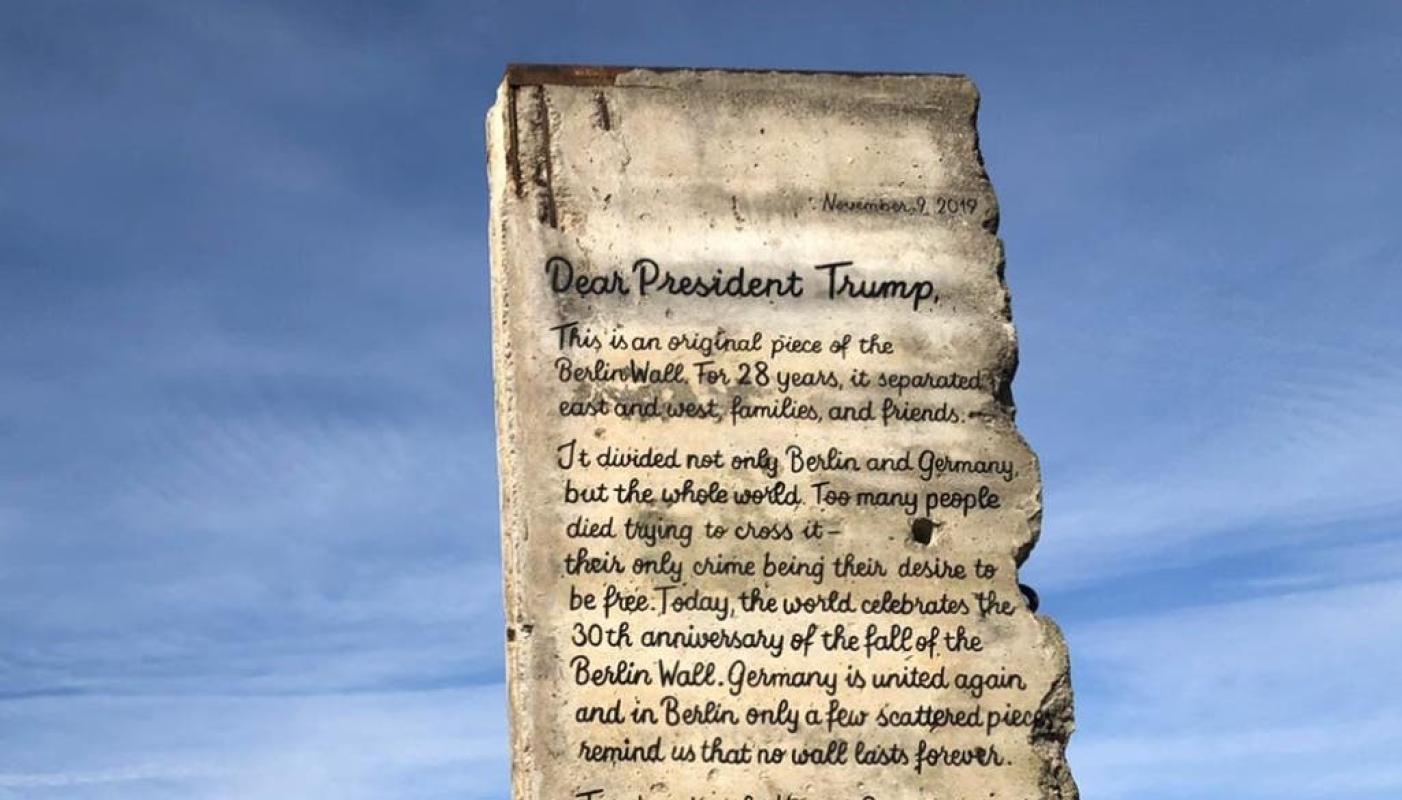 November 9, 2019
Dear President Trump,
This is an original piece of the
Berlin Wall. For 28 years, it separated
east and west, families, and friends.
It divided not only Berlin and Germany,
but the whole world. Too many people
died trying to cross it –
their only crime being their desire to
be free. Today, the world celebrates the
30th anniversary of the fall of the
Berlin Wall. Germany is united again
and in Berlin only a few scattered pieces
remind us that no wall lasts forever.